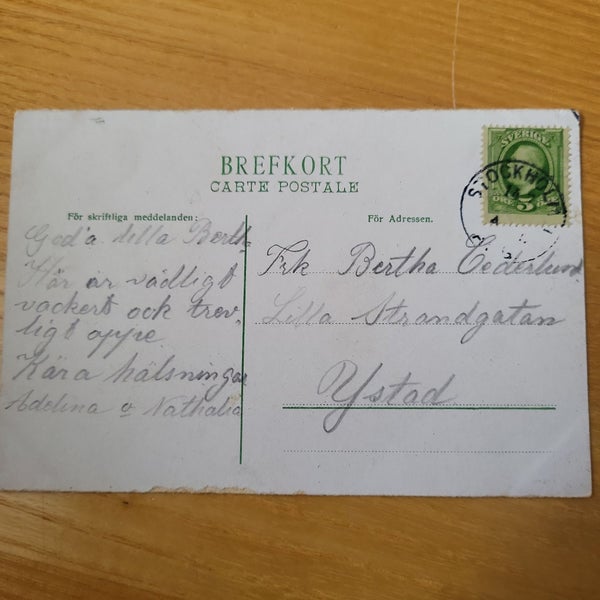 BREFKORT
CARTE POSTALE
För skriftliga meddelanden:
God'a lilla Bertha
Här är vådligt
vackert och trev-
ligt oppe.
Kära hälsningar
Adelina o Nathalia
För Adressen.
Frk Bertha Cederlund
Lilla Strandgatan
Ystad
SVERIGE
ÖRE 5
STOCKHOLM